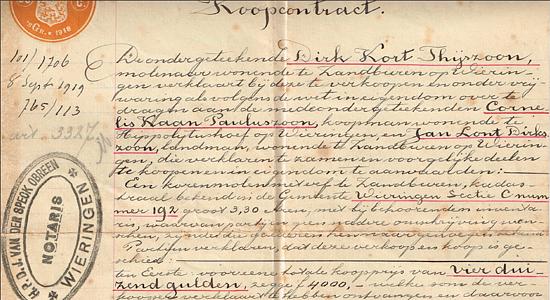 Koopcontract.
's Gr. 1918
101/1706
8 Sept 1919
765/113
art. 3327
De ondergeteekende Dirk Kort Thijszoon,
molinaar wonende te Landburen op Wierin-
gen verklaart bij deze te verkoopen en onder vrij
waring als volgens de wet in eigendom over te
dragen aan de medeonderget eekenden Corne
lis Kaan Pauluszoon, koopman wonende te
Hippolytushoef op Wieringen, en Jan Lont Dirks
zoon, landman, wonende te Landburen op Wierin-
gen, die verklaren te zamen en voor gelijke deelen
te koopen en in eigendom te aanvaarden:
Een korenmolen met erf te Landburen, kadas-
traal bekend in de Gemeente Wieringen Sectie C num
mer 192 groot 3,30 Aren, met bijbehoorenden inventa
ris, waarvan partijen geen nadere omschrijving wen-
Partijen verklaren, dat deze verkoop en koop is ge-
schied:
ten Eerste: voor eene totale koopprijs van vier dui
zend gulden, zegge f 4000,- welke som de ver-
kooper verklaart te hebben ontvangen en daarvoor
H.P.D.J. VAN DER SPECK OBREEN
NOTARIS
WIERINGEN